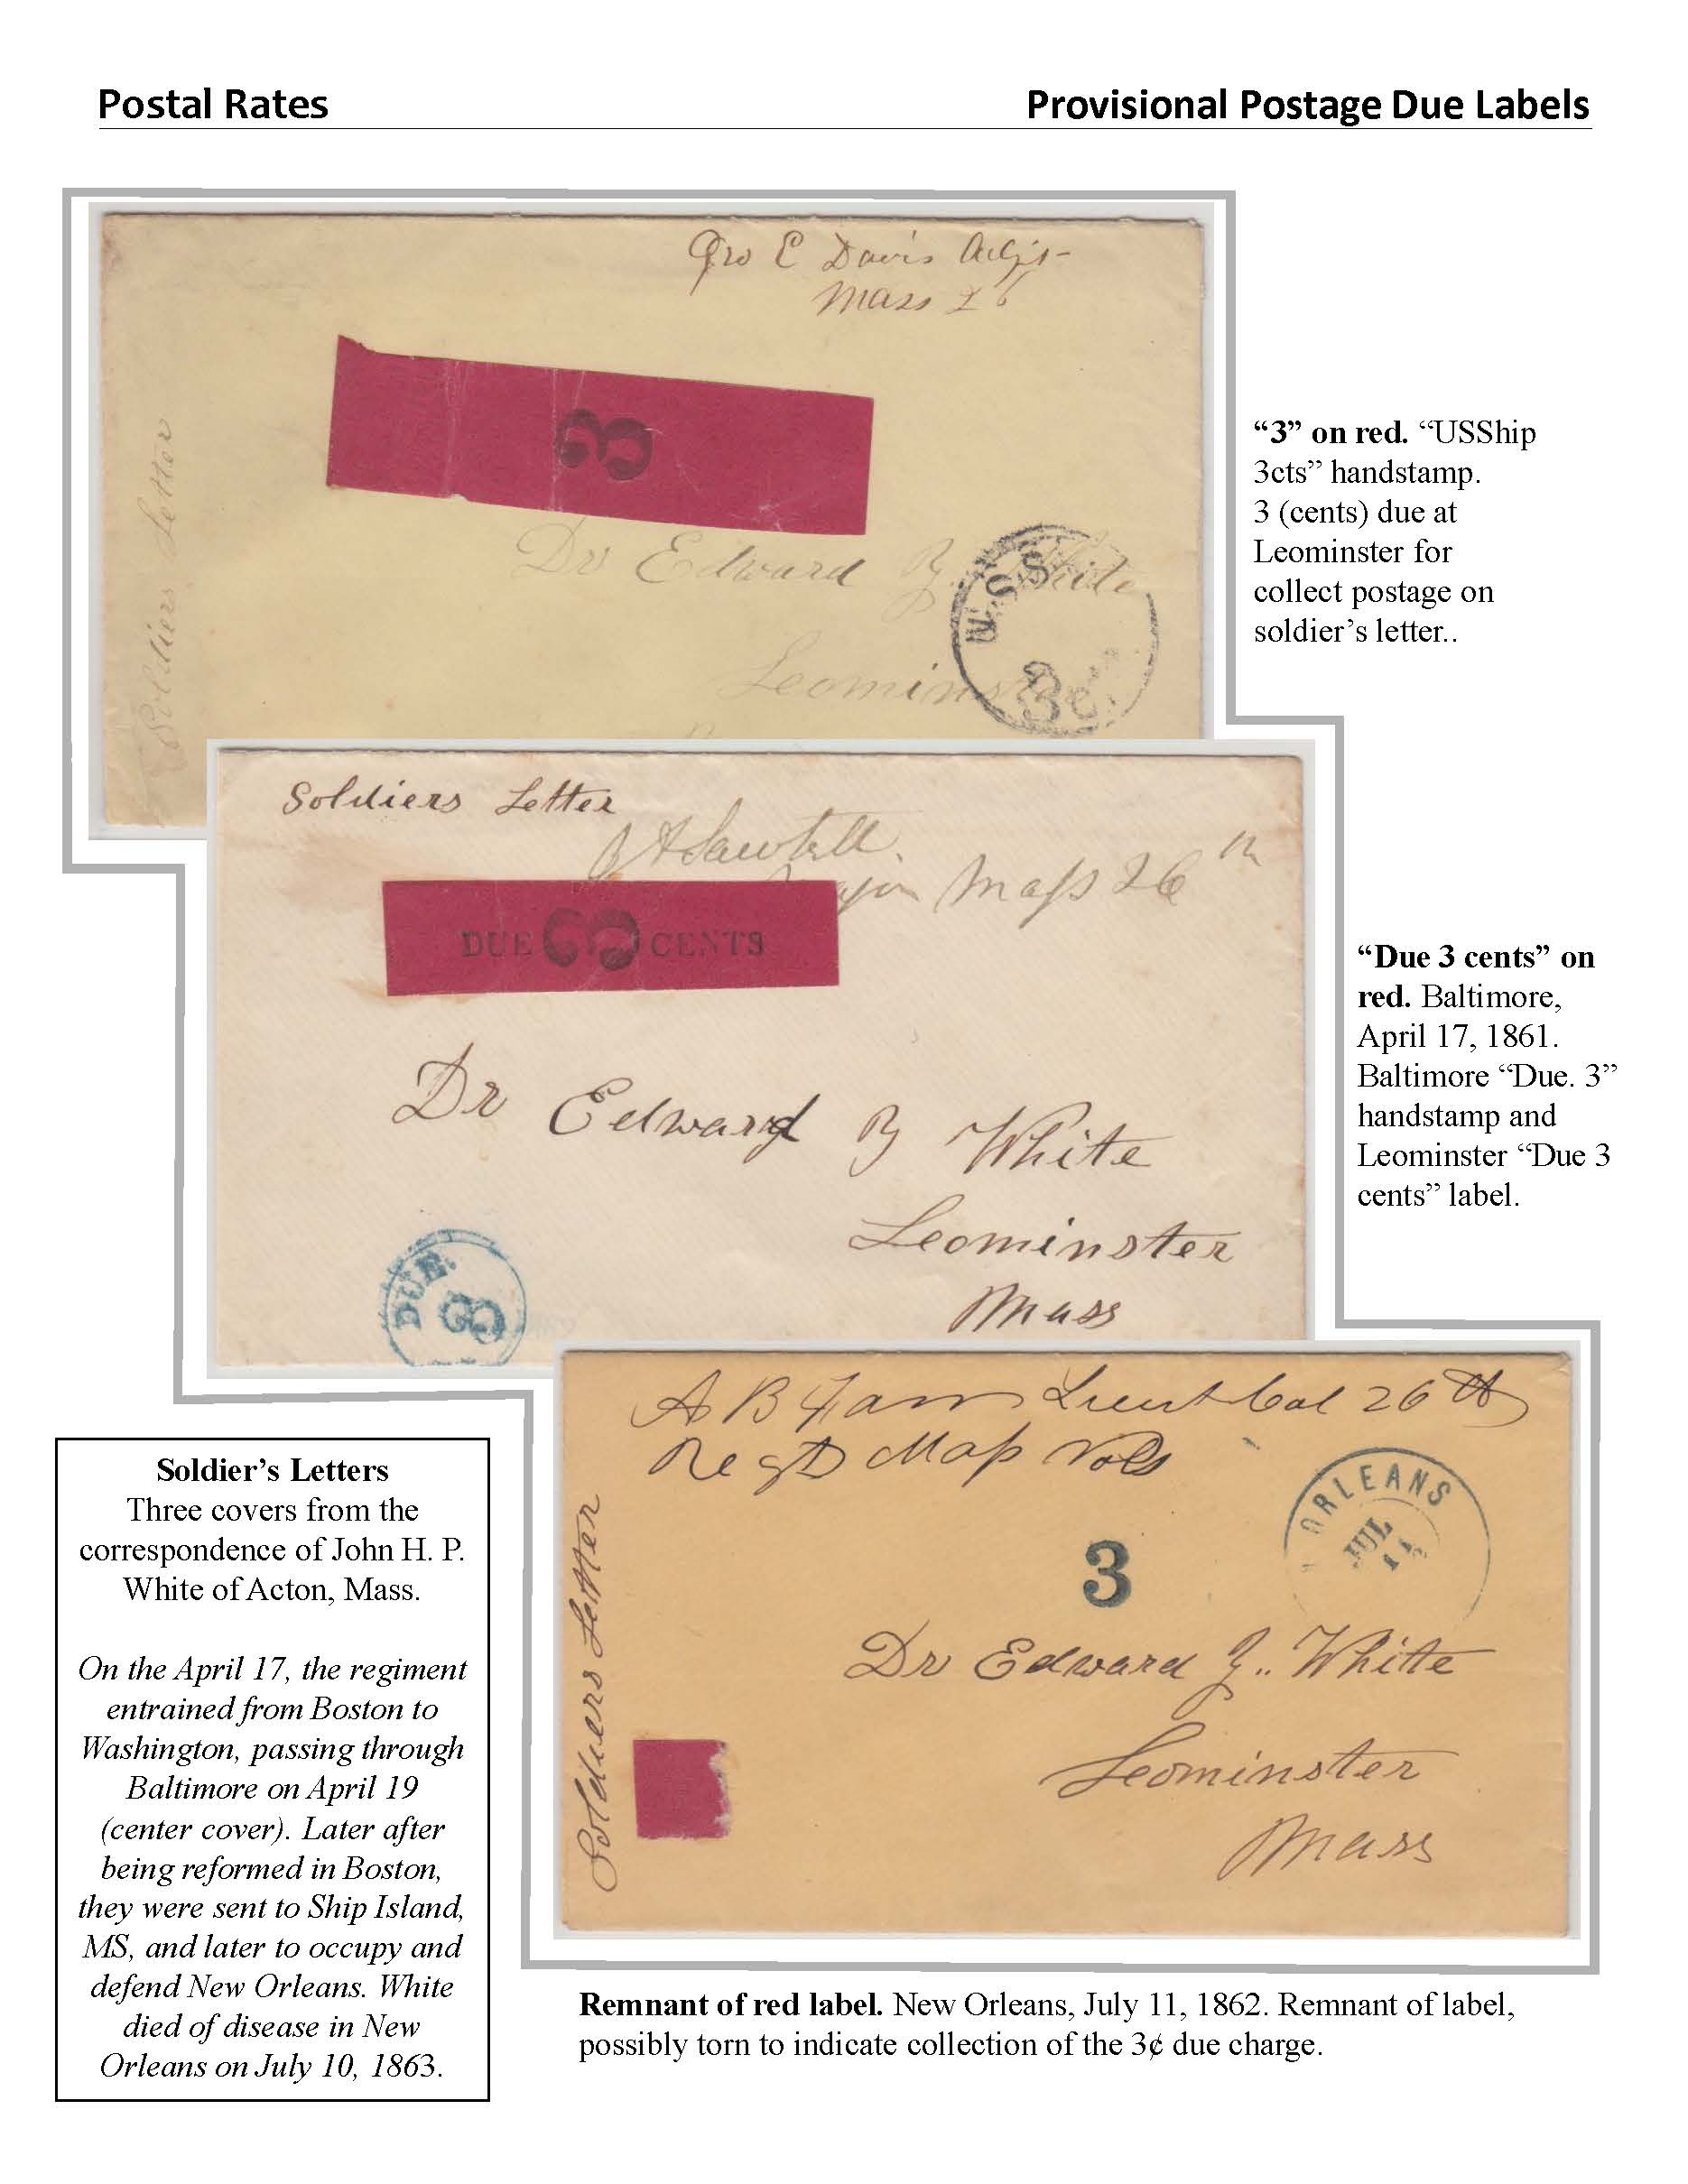 Postal Rates
Provisional Postage Due Labels
Geo E Davis Adjt
Mass 26
3
Soldiers Letter
Dr Edward Z. White
Leominster
U.S.S
3c
“3” on red. “USShip
3cts” handstamp.
3 (cents) due at
Leominster for
collect postage on
soldier’s letter..
Soldiers Letter
Sawtell
Major Mass 26th
DUE 3 CENTS
Dr Edward Z White
Leominster
Mass
DUE.
3
“Due 3 cents” on
red. Baltimore,
April 17, 1861.
Baltimore “Due. 3”
handstamp and
Leominster “Due 3
cents” label.
A B Farr Lieut Col 26th
Regt Mass Vols
ORLEANS
JUL
11
3
Soldiers Letter
Dr Edward Z.. White
Leominster
Mass
Soldier’s Letters
Three covers from the
correspondence of John H. P.
White of Acton, Mass.
On the April 17, the regiment
entrained from Boston to
Washington, passing through
Baltimore on April 19
(center cover). Later after
being reformed in Boston,
they were sent to Ship Island,
MS, and later to occupy and
defend New Orleans. White
died of disease in New
Orleans on July 10, 1863.
Remnant of red label. New Orleans, July 11, 1862. Remnant of label,
possibly torn to indicate collection of the 3¢ due charge.